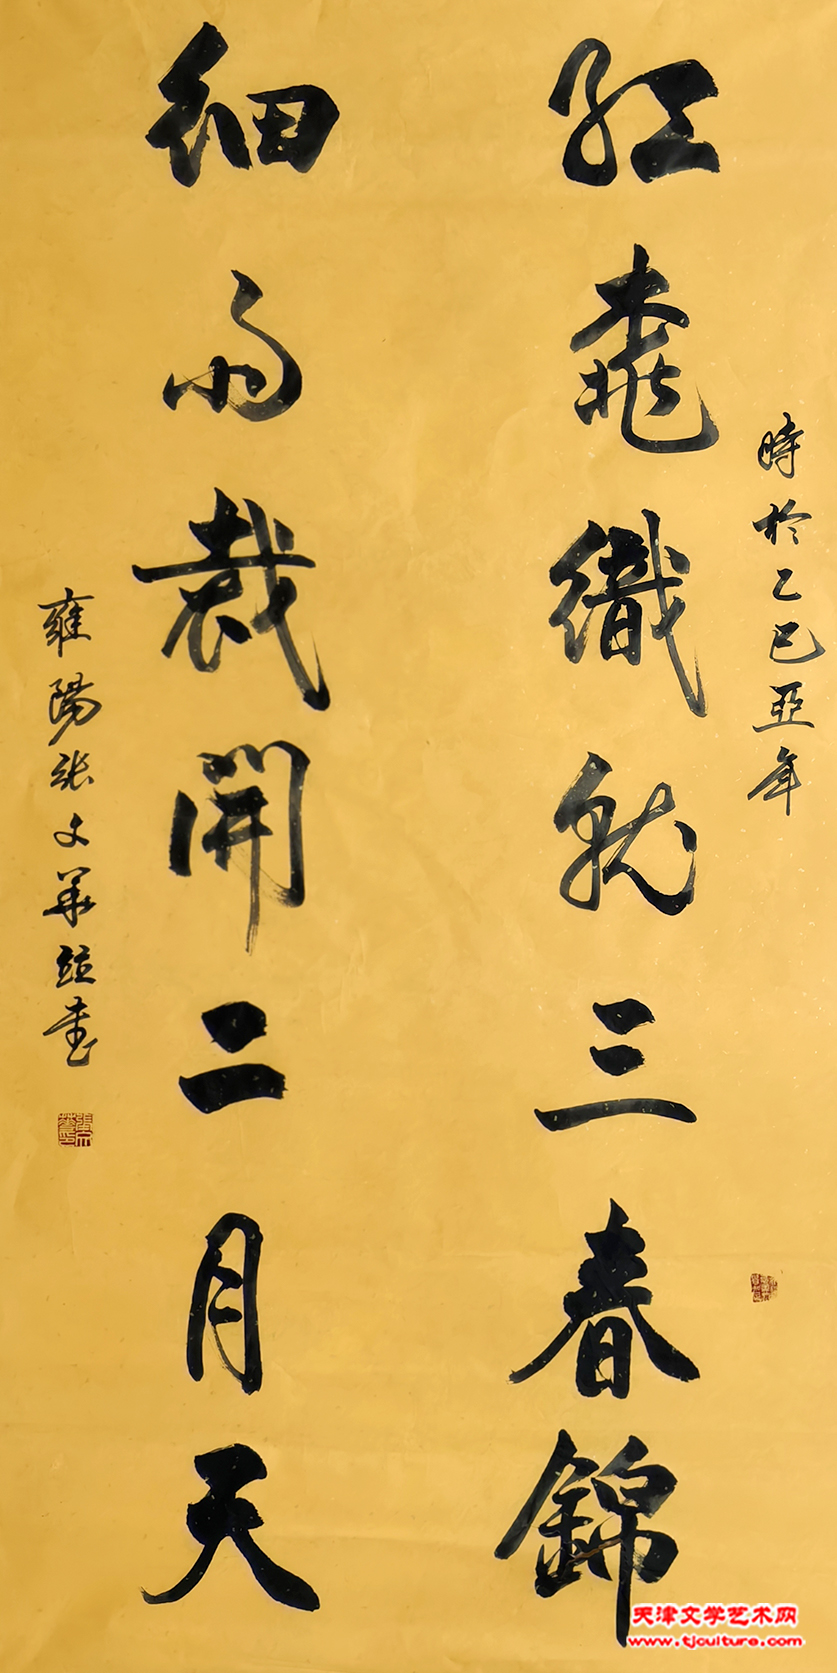 時於乙巳亞年
紅桃織就三春錦
細雨裁開二月天
雍陽張文華書
天津文学艺术网
www.tjculture.com